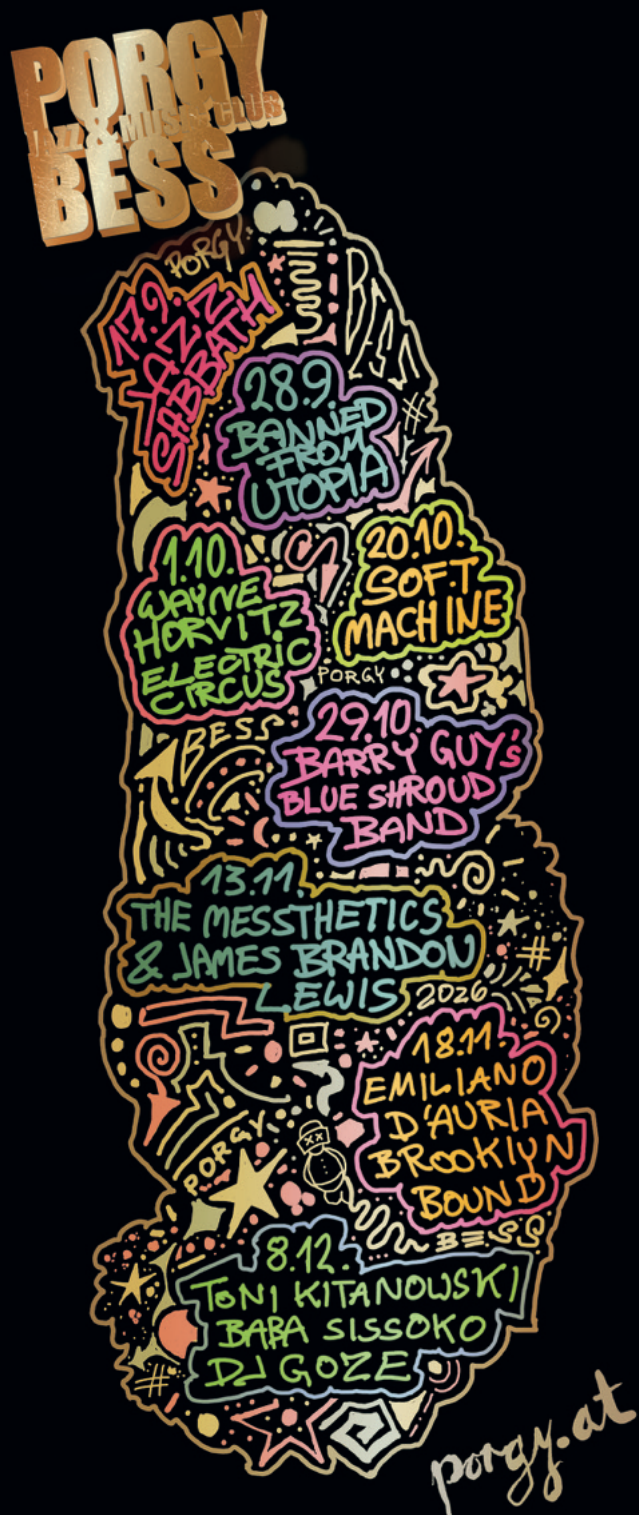 PORGY
JAZZ & MUSIC CLUB
BESS
PORGY
BESS
17.9.
JAZZ
SABBATH
28.9.
BANNED
FROM
UTOPIA
#
1.10.
WAYNE
HORVITZ
ELECTRIC
CIRCUS
20.10.
SOFT
MACHINE
PORGY
BESS
29.10.
BARRY GUY's
BLUE SHROUD
BAND
13.11.
THE MESSTHETICS
& JAMES BRANDON
LEWIS
#
2026
18.11.
EMILIANO
D'AURIA
BROOKLYN
BOUND
PORGY
BESS
8.12.
TONI KITANOWSKI
BABA SISSOKO
DJ GOZE
#
porgy.at